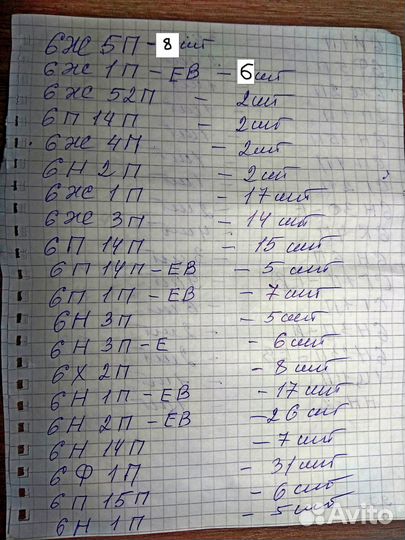 6Ж 5П - 8 шт
6Ж 1П - ЕВ - 6 шт
6Ж 52П - 2 шт
6П 14П - 2 шт
6Ж 4П - 2 шт
6Н 2П - 2 шт
6Ж 1П - 17 шт
6Ж 3П - 14 шт
6П 14П - 15 шт
6П 14П - ЕВ - 5 шт
6П 1П - ЕВ - 7 шт
6Н 3П - 5 шт
6Н 3П - Е - 6 шт
6Х 2П - 8 шт
6Н 1П - ЕВ - 17 шт
6Н 2П - ЕВ - 26 шт
6Н 14П - 7 шт
6Ф 1П - 31 шт
6П 15П - 6 шт
6Н 1П - 5 шт
Avito